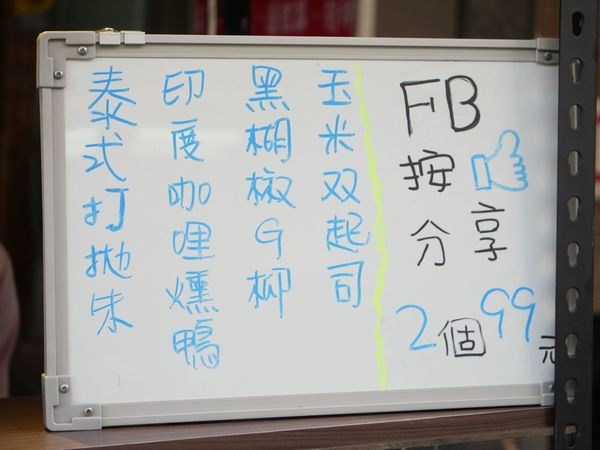 FB
按
分享
2個99元
玉米双起司
黑糊椒G柳
印度咖哩燻鴨
泰式打抛朱